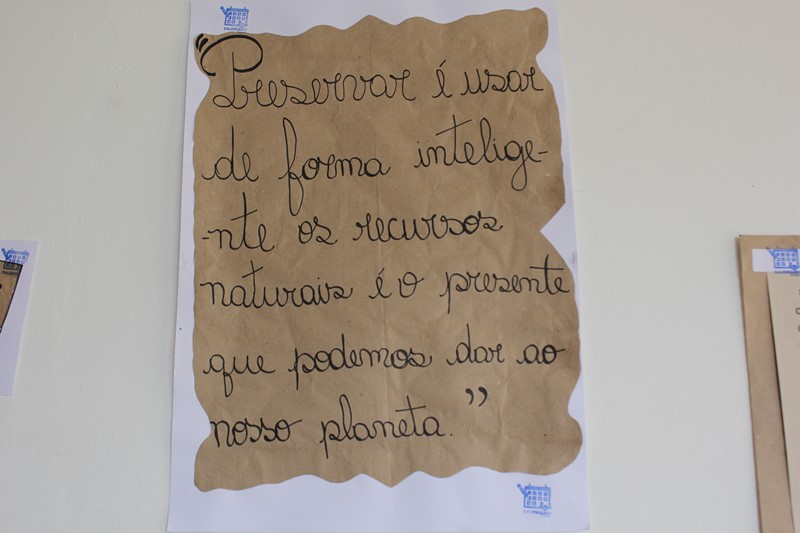 "Preservar é usar
de forma intelige-
-nte os recursos
naturais é o presente
que podemos dar ao
nosso planeta."